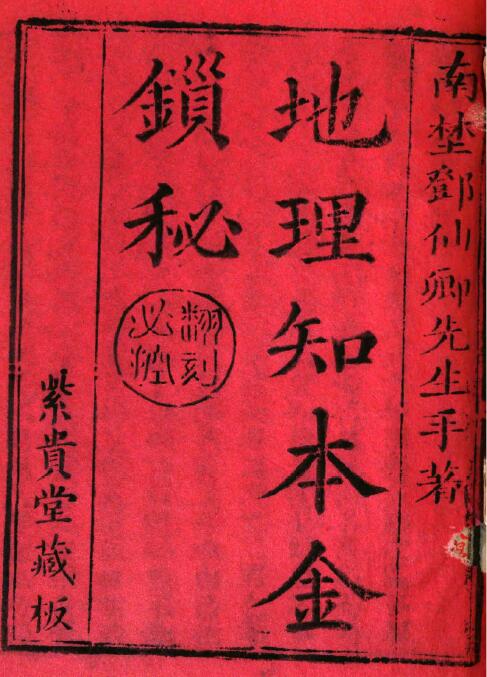 南埜鄧仙卿先生手著
地理知本金
鎖秘
翻刻
必究
紫貴堂藏板